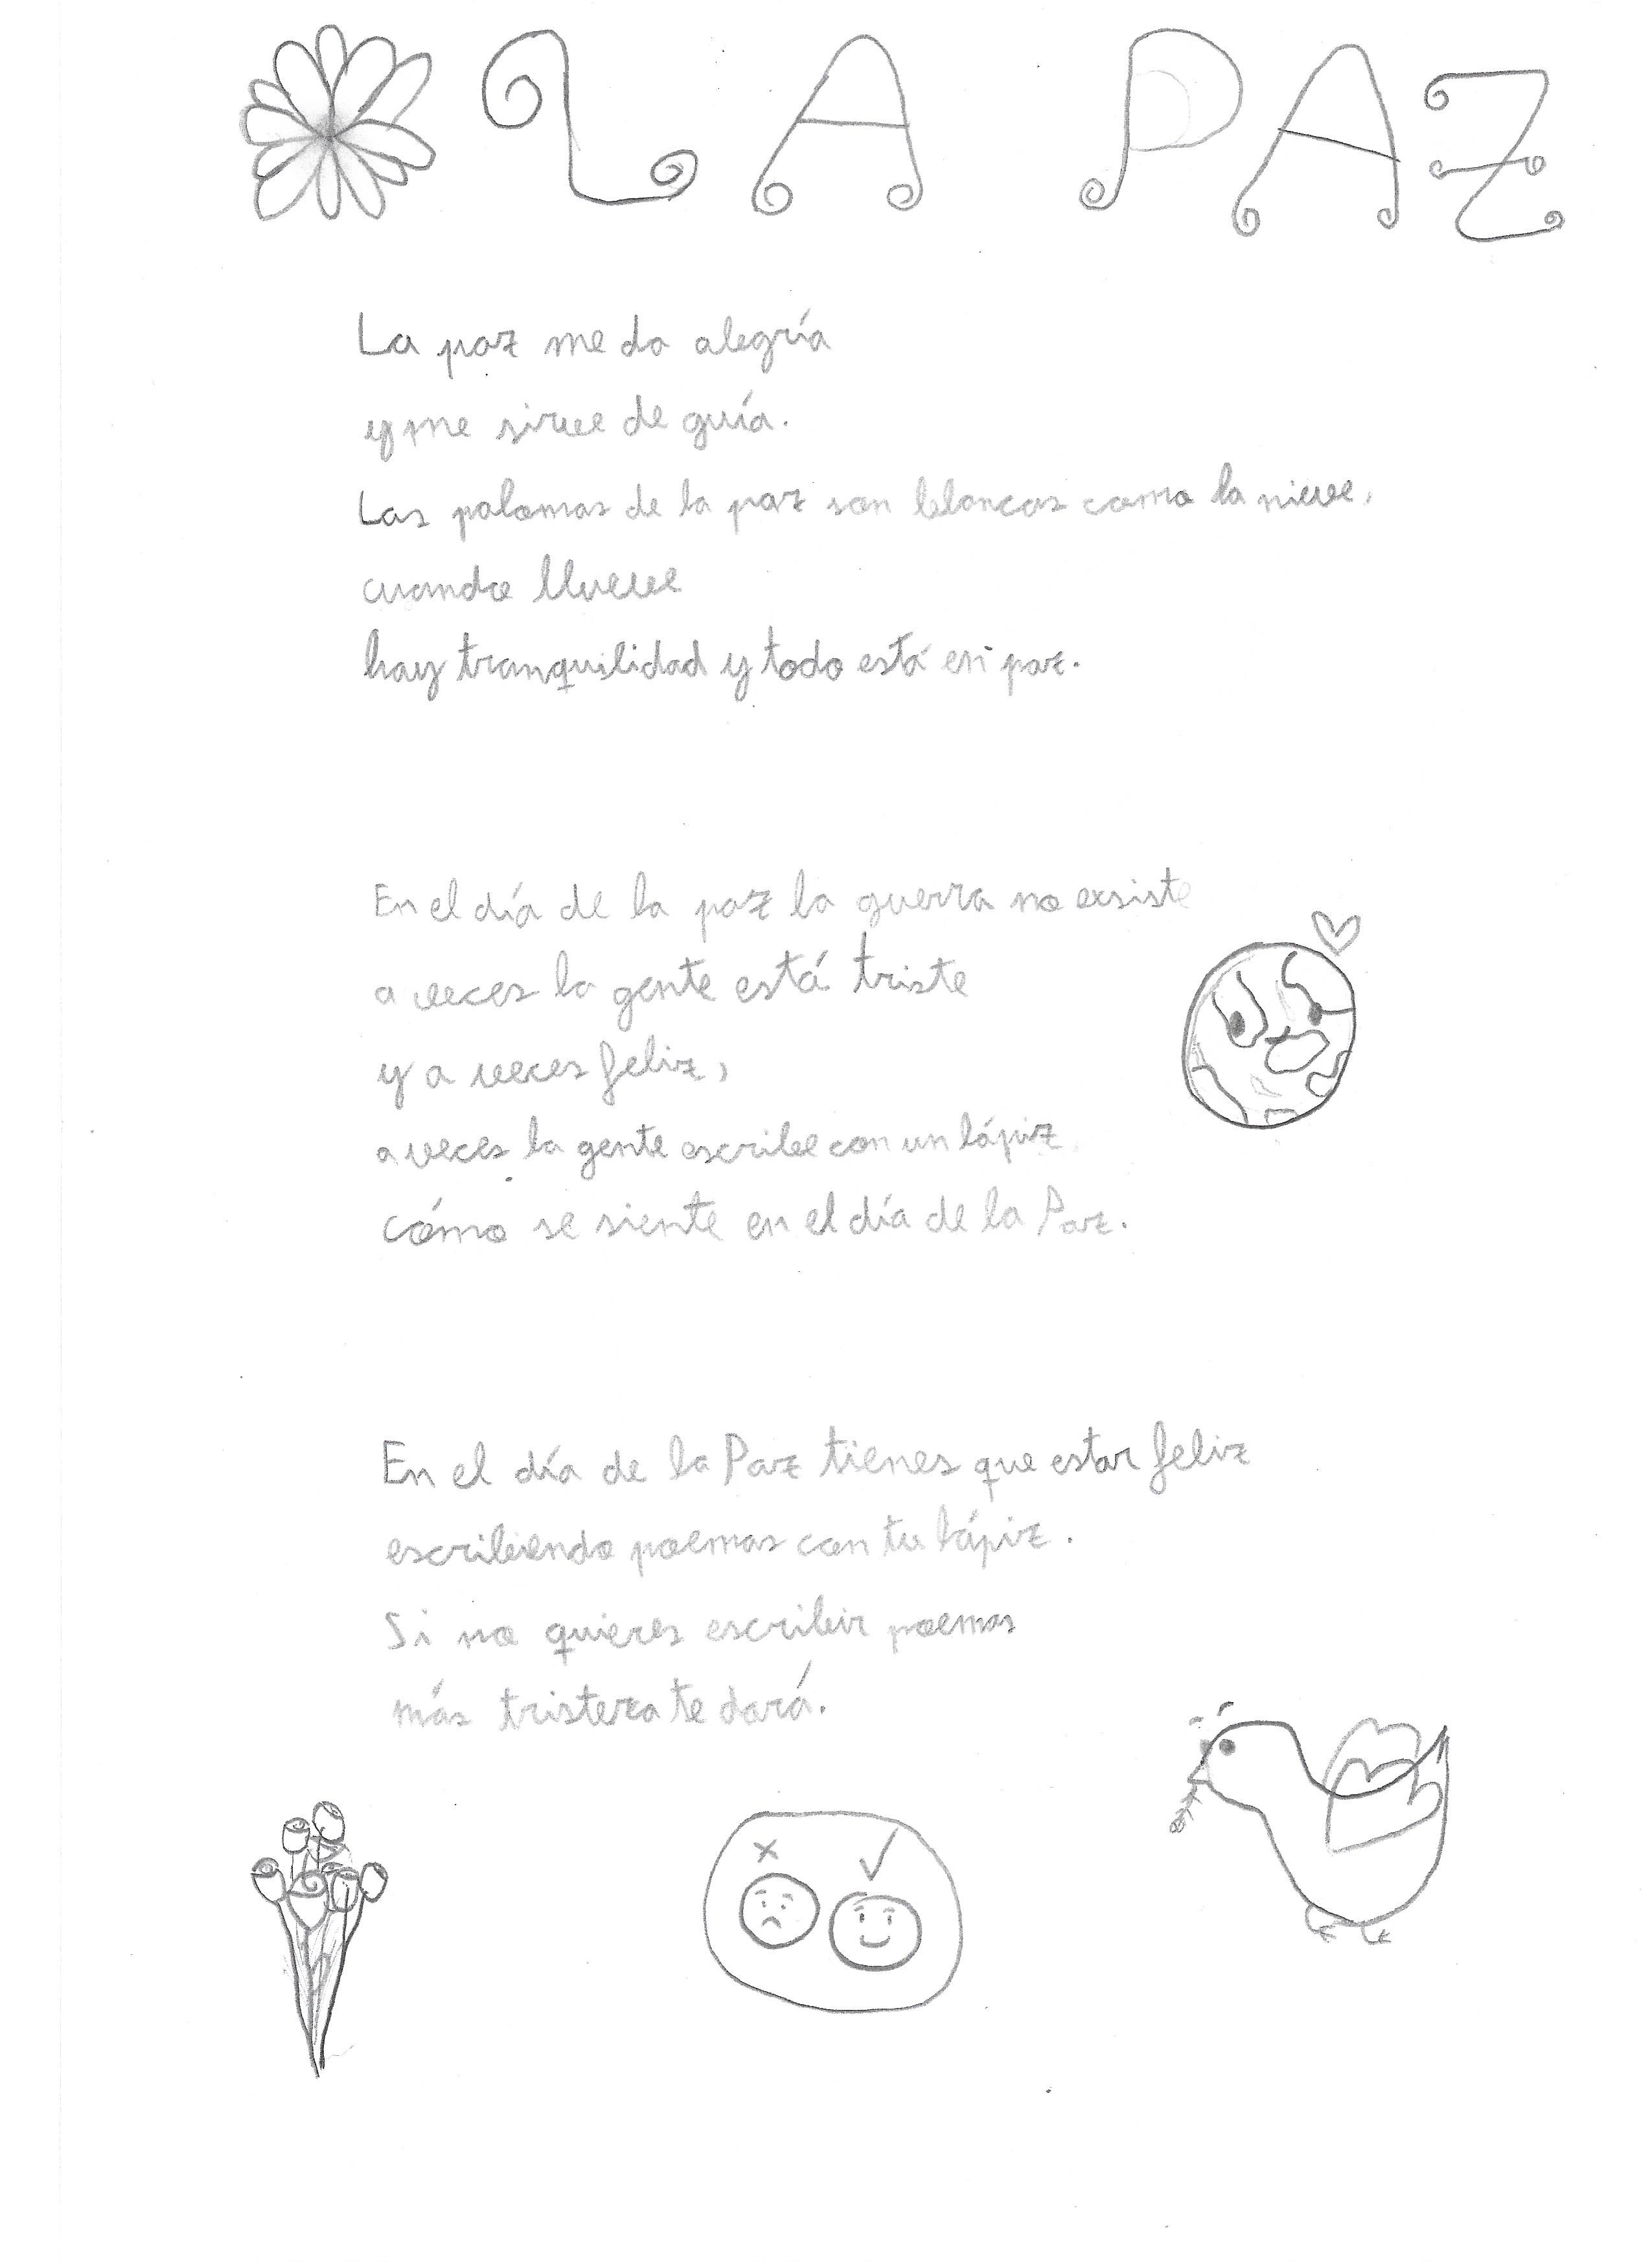 LA PAZ
La paz me da alegría
y me sirve de guía.
Las palomas de la paz son blancas como la nieve,
cuando llueve
hay tranquilidad y todo está en paz.
En el día de la paz la guerra no exsiste
a veces la gente está triste
y a veces feliz,
a veces la gente escribe con un lápiz
cómo se siente en el día de la Paz.
En el día de la Paz tienes que estar feliz
escribiendo poemas con tu lápiz.
Si no quieres escribir poemas
más tristeza te dará.